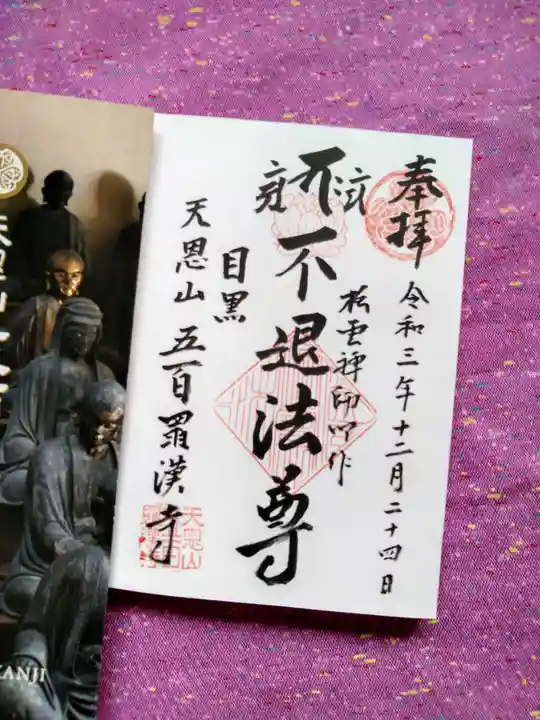 奉拝
令和三年十二月二十四日
松雲禅師作
不退法尊
目黒
天恩山 五百羅漢寺
天恩山
KANJI